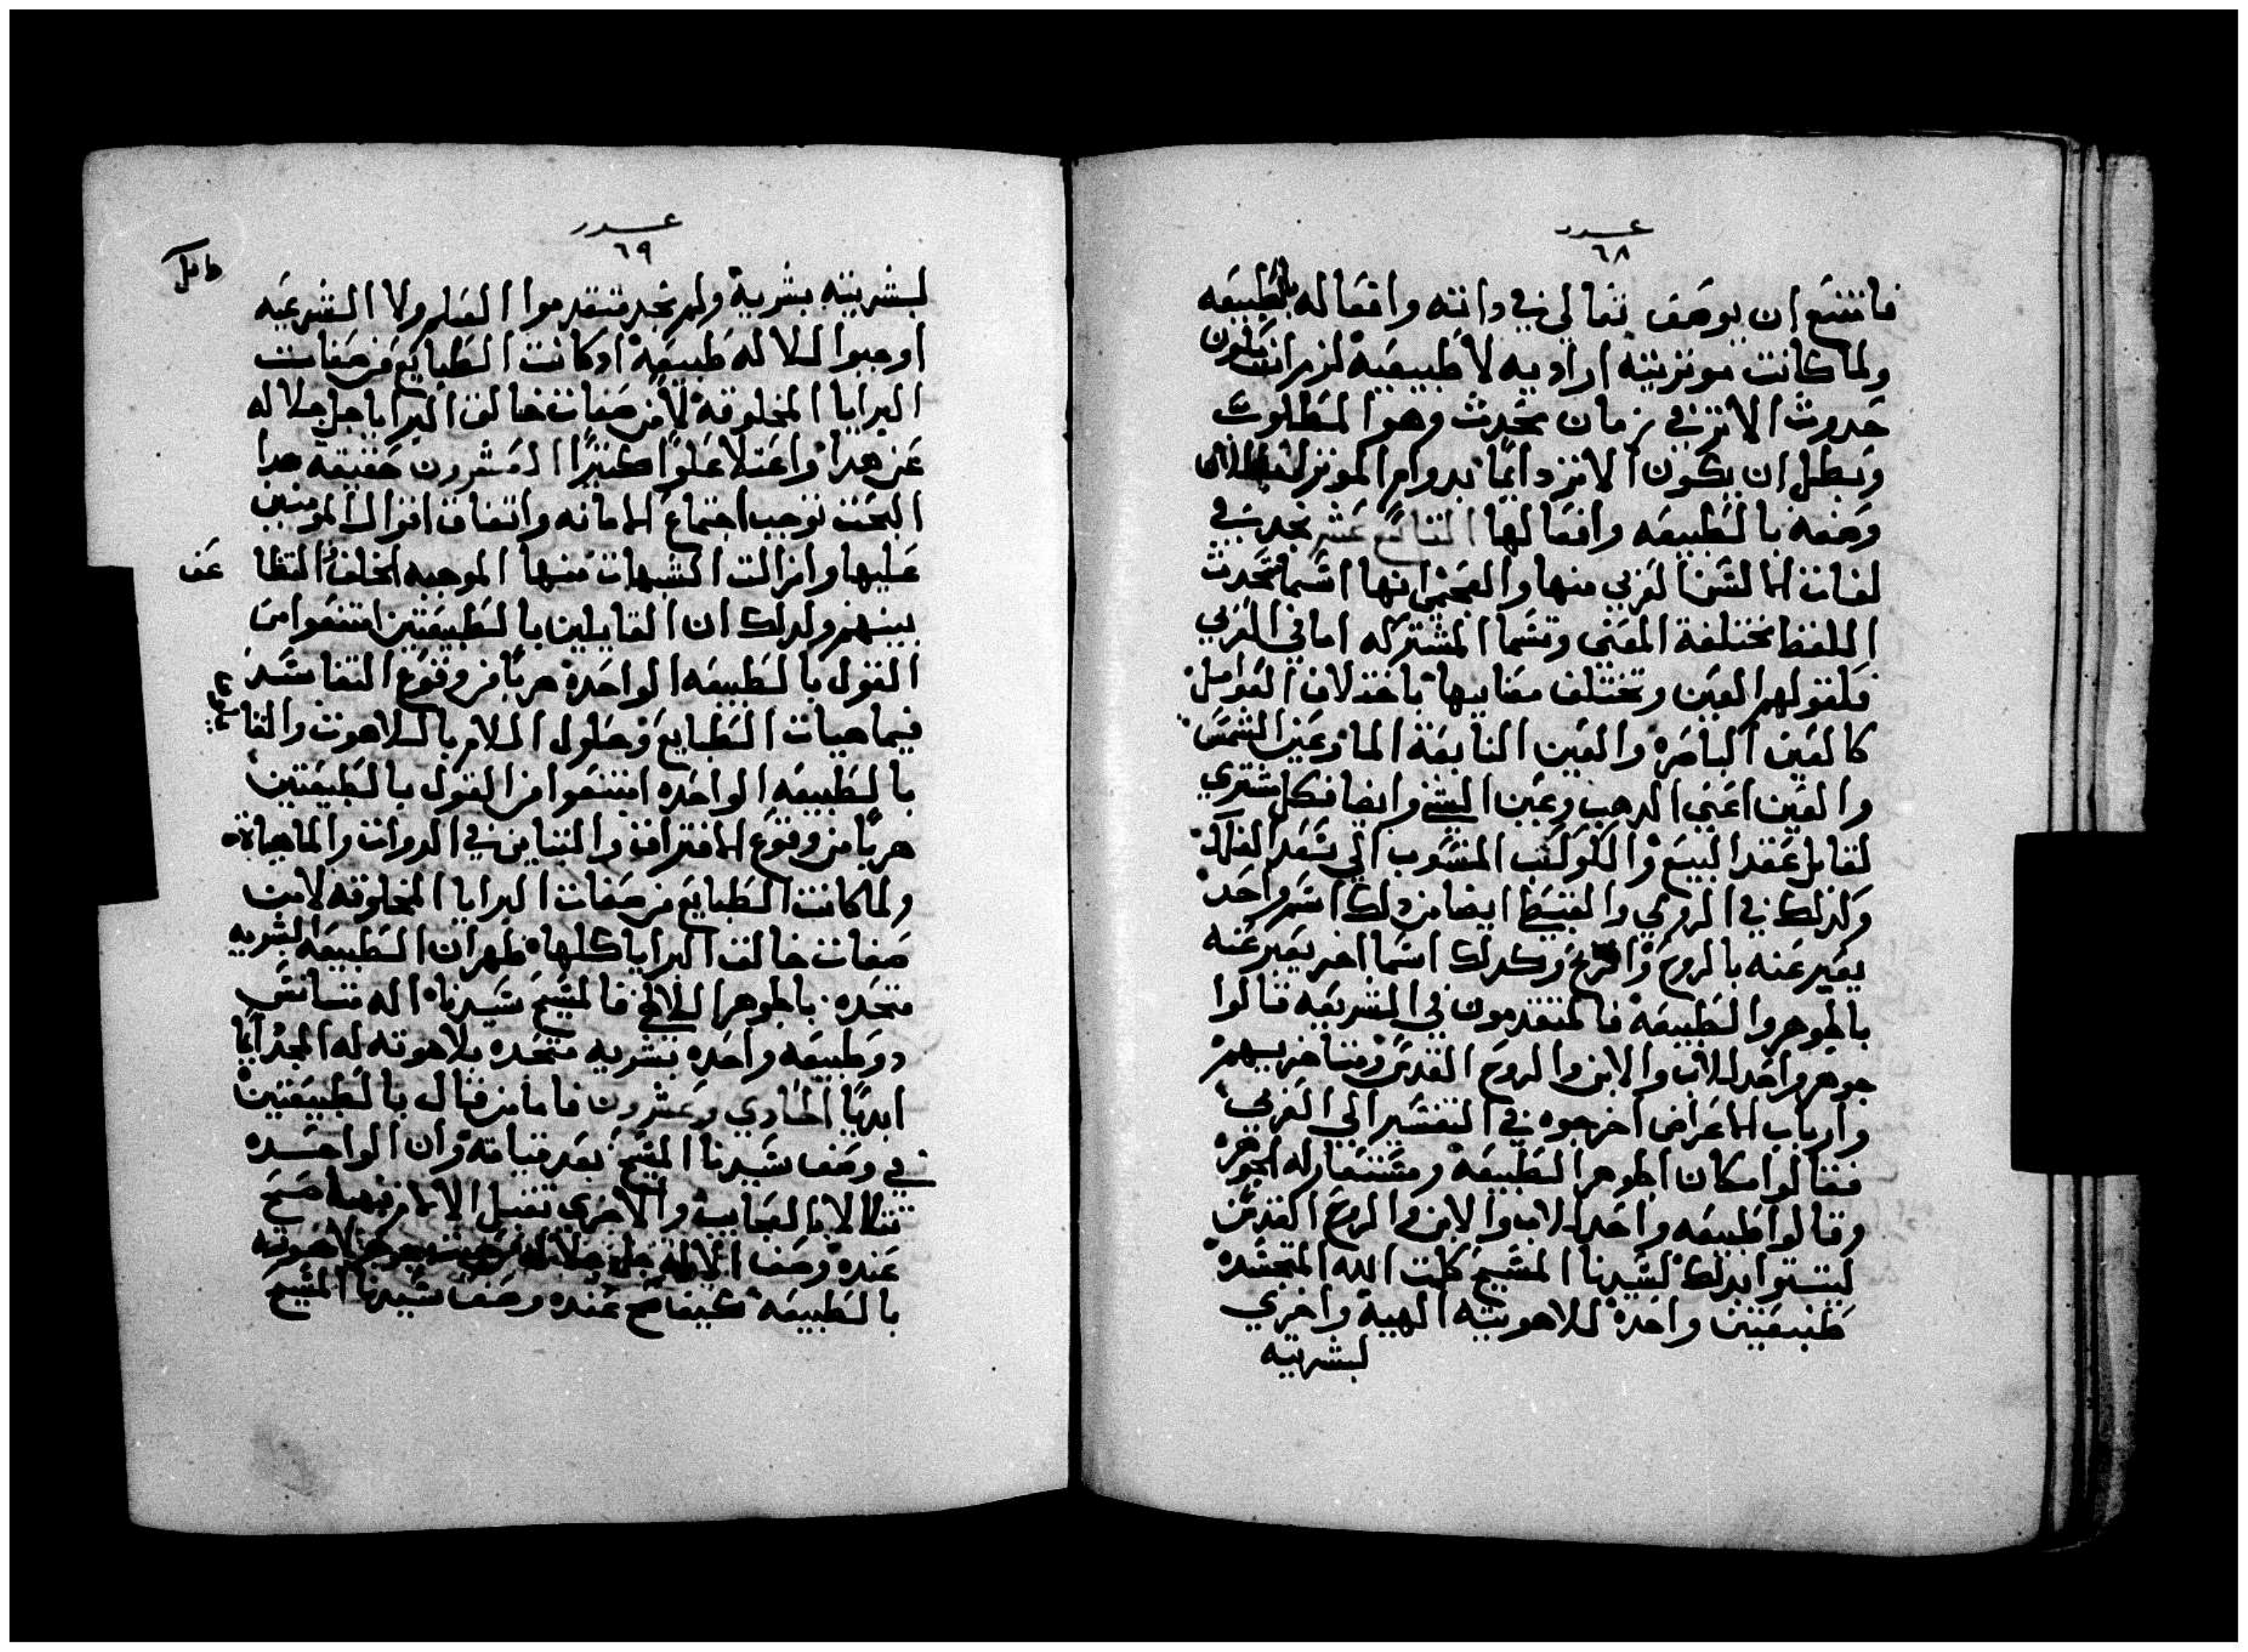 عدد
٦٨
فامتنع ان يوصف تعالي في داته وافعاله بالطبيعه
ولما كانت موثريته اراديه لا طبيعيه لزم ان يكون
حدوث الاثر في زمان محدث وهو المطلوب
وبطل ان يكون الاثر دايمًا بدوام الموثر
وصفه بالطبيعه وافعالها التاسع عشر نجد في
لغات الالسن العربي منها والعجمي انها اسما متحدث
اللفظ مختلفة المعني وتسما المشتركه اما في العربي
فلقولهم العين وتختلف معانيها باختلاف العوامل
كالعين الباصره والعين النابعة الما وعين الشمس
والعين اعني الدهب وعين الشي وايضا فكل مشتري
لقابل عقد البيع والكوكب المنسوب الي سعد الفلك
وكذلك في الرومي والقبطي ايضا من دلك اسم واحد
يعبر عنه بالروح والريح وكدلك اسما اخر يعبر عنه
بالجوهر والطبيعه فالمتقدمون في الشريعه قالوا
جوهر واحد للاب والابن والروح القدس ومتاخريهم
وارباب الاعراض اخرجوه في التفسير الي العربي
فقالوا مكان الجوهر الطبيعه ومستعار له الجوهر
وقالوا طبيعه واحده للاب والابن والروح القدس
ليتبتوا بدلك لسيدنا المسيح كلمت الله المتجسده
طبيعتين واحده للاهوتيته الهية واخري
لبشريته
عدد
٦٩
لبشريته بشرية ولم نجد متقدموا العلم ولا الشرعيه
اوجبوا للاله طبيعه ادكانت الطبايع من صفات
البرايا المخلوقه لا من صفات خالق البرايا جل جلاله
عن هدا واعتلا علوًا كثيرًا العشرون حقيقه هدا
البحث توجب اجتماع الامانه واتفاق اقوال المومنين
عليها وازالت الشبهات عنها الموجبه الخلف
بينهم ولدلك ان القايلين بالطبيعتين امتنعوا من
القول بالطبيعه الواحده هربًا من وقوع التفاسد
فيما هيات الطبايع وحلول الالام باللاهوت والقا
بالطبيعه الواحده امتنعوا من القول بالطبيعتين
هربًا من وقوع الافتراق والتباين في الدوات والماهياة
ولما كانت الطبايع من صفات البرايا المخلوقه لامن
صفات خالق البرايا كلها ظهر ان الطبيعه البشريه
متحده بالجوهر الالاهي فالمسيح سيدنا اله متانس
دو طبيعه واحده بشريه متحده بلاهوته له المجد دايمًا
ابديًا الحادي وعشرون فاما من قال بالطبيعتين
في وصف سيدنا المسيح بعد قيامته وان الواحده
تتلالا بالعجايب والاخري تقبل الالام فهل صح
عنده وصف الالاه جل جلاله من حيث جوهر لاهوته
بالطبيعه كيفا صح عنده وصف سيدنا المسيح